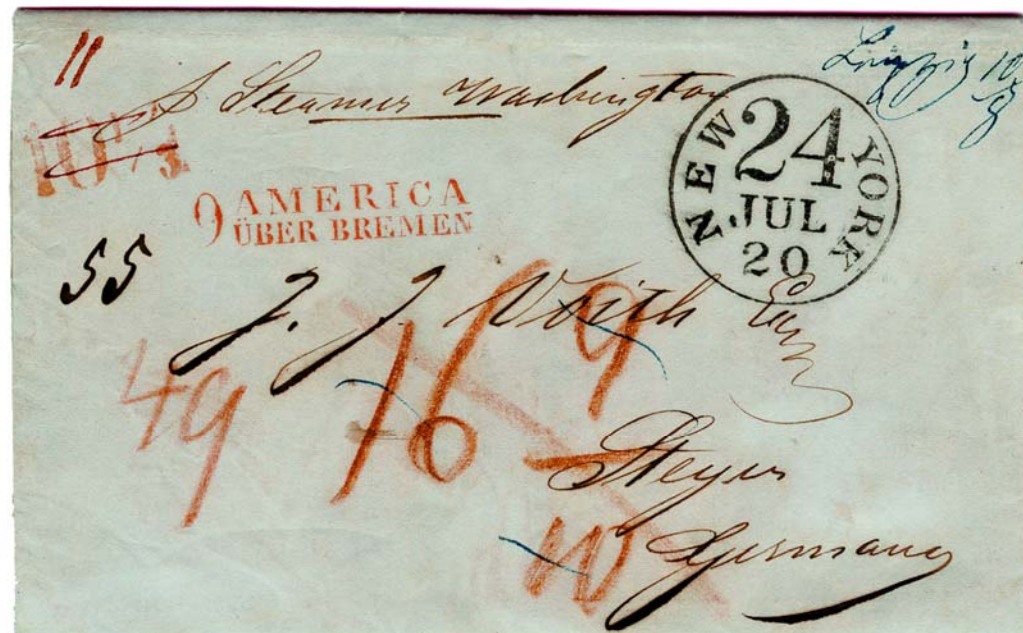 11
p Steamer Washington
Leipzig 10/8
10 1/3
NEW YORK
24
JUL
20
9 AMERICA
ÜBER BREMEN
55
J. J. Voith Esq
49
16
9
Steyer
Germany